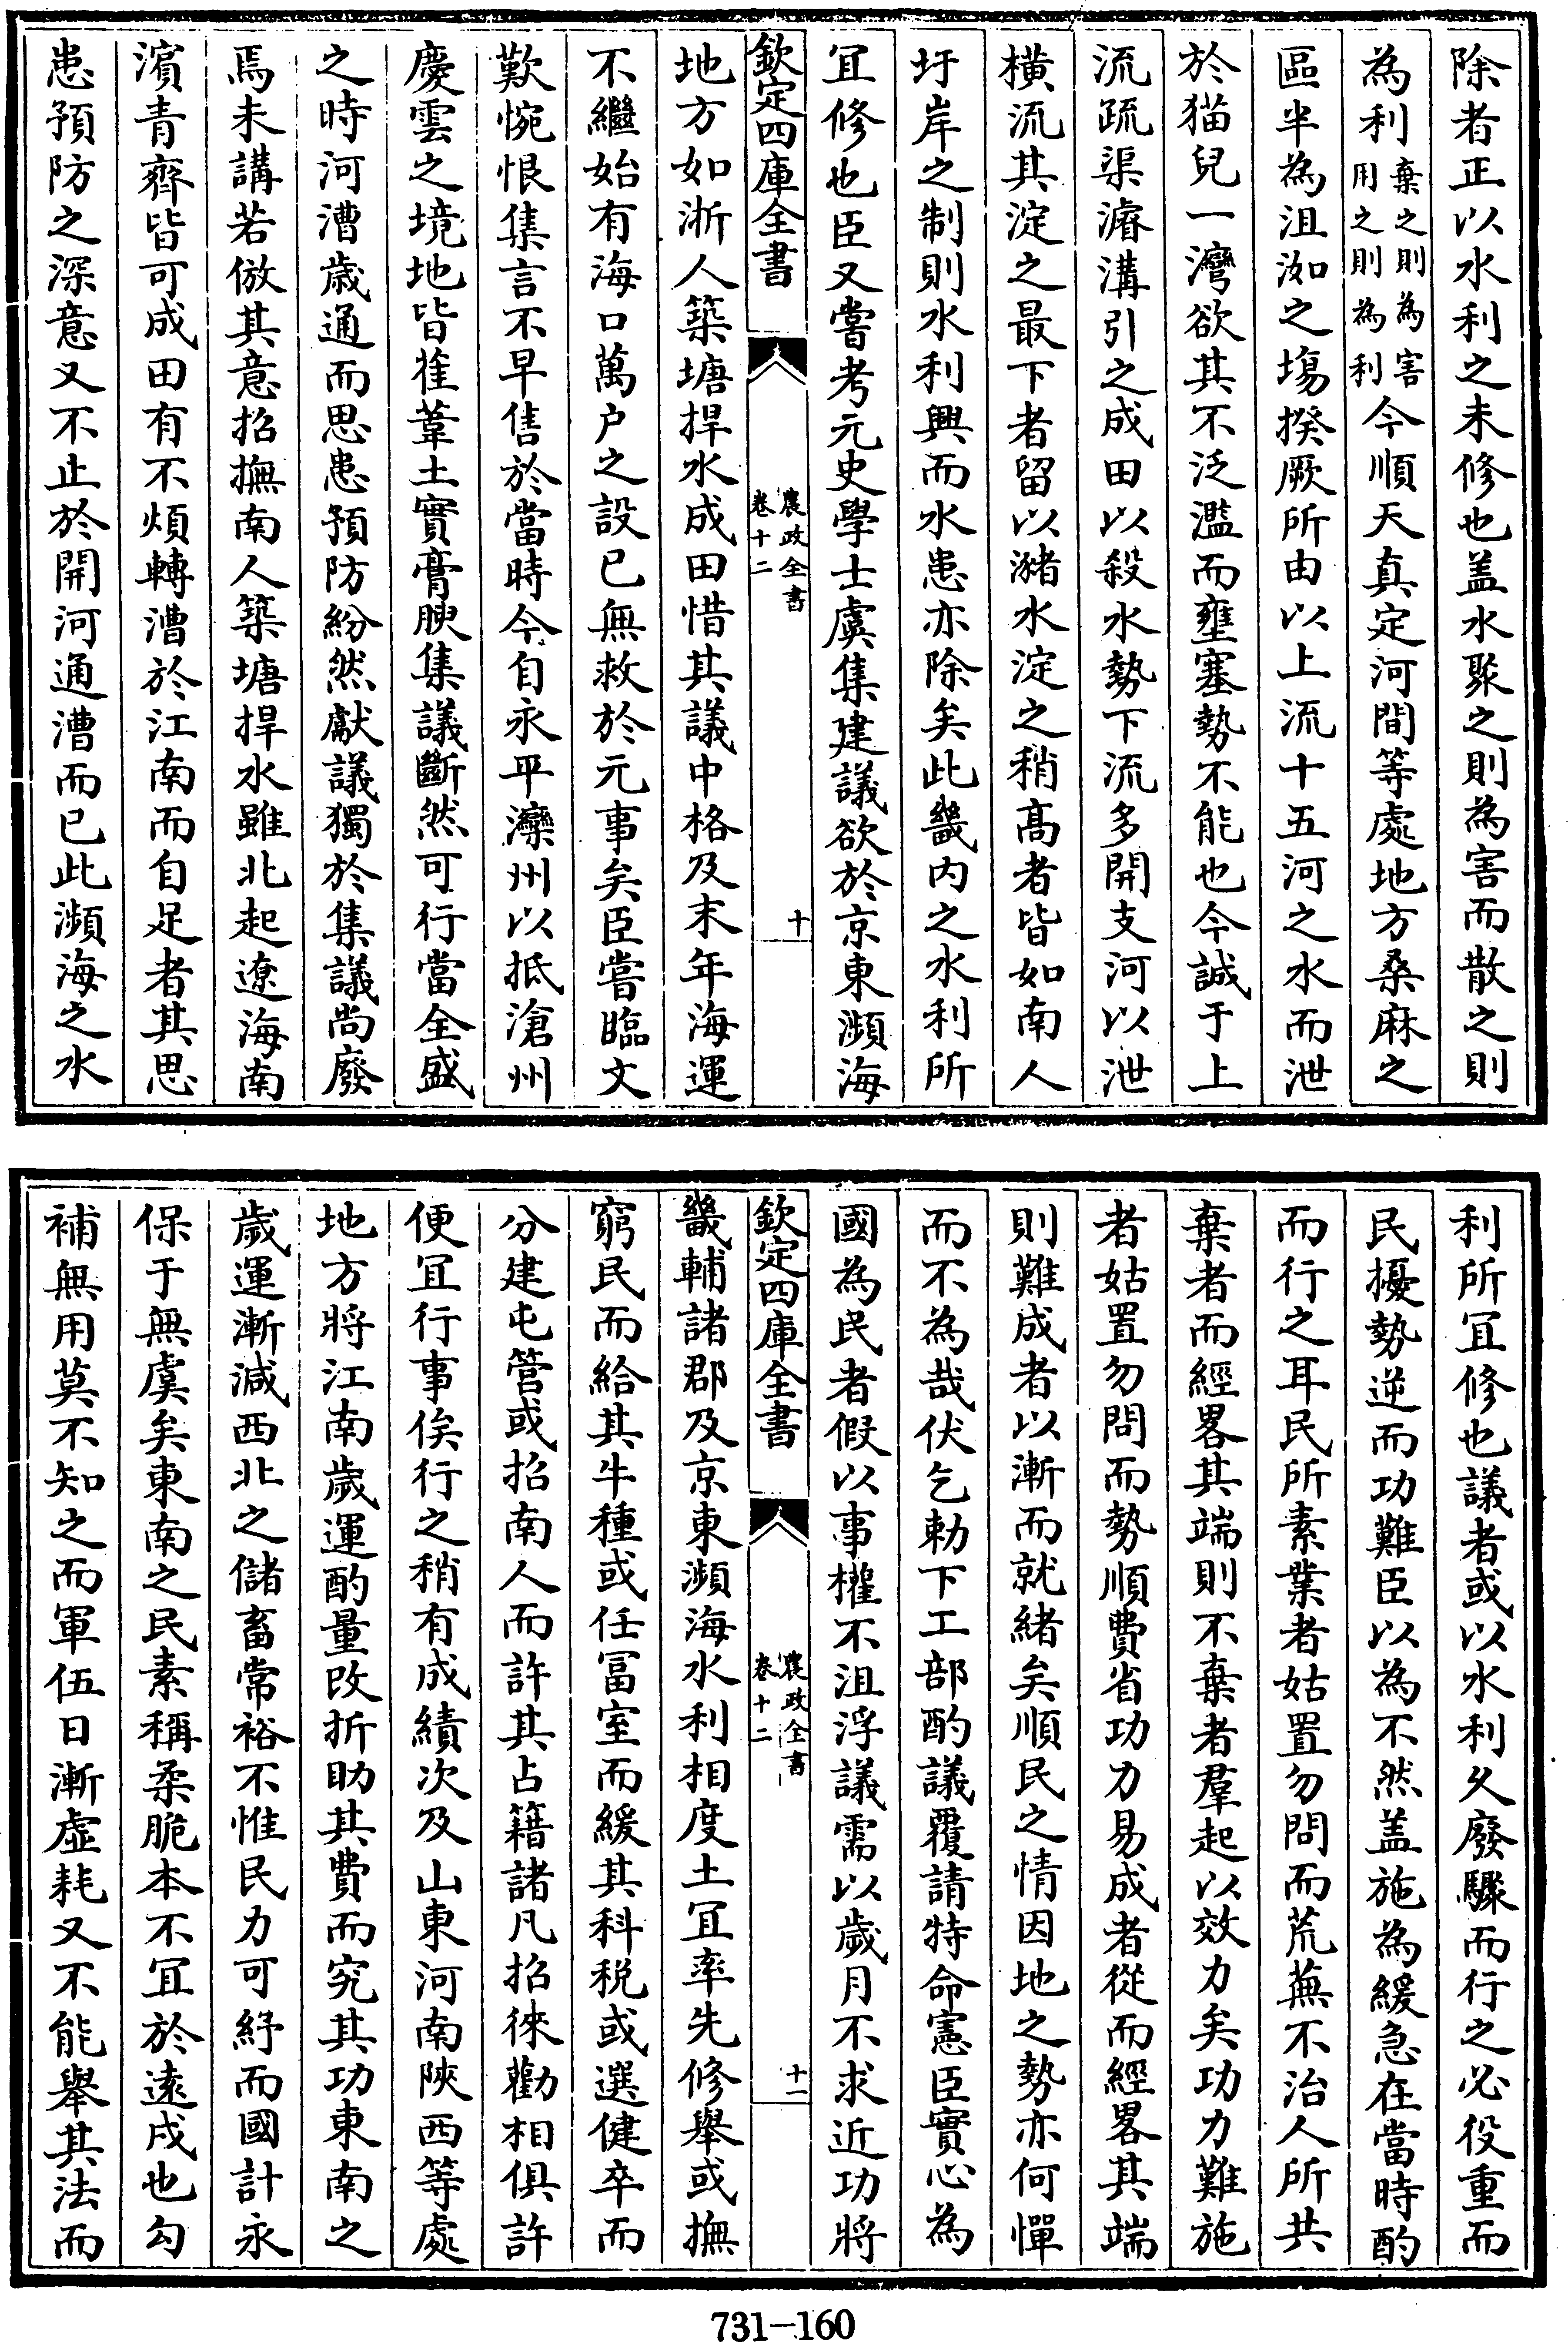 除者正以水利之未修也盖水聚之則為害而散之則
為利棄之則為害用之則為利今順天真定河間等處地方桑麻之
區半為沮洳之塲揆厥所由以上流十五河之水而泄
於猫兒一灣欲其不泛濫而壅塞勢不能也今誠于上
流疏渠濬溝引之成田以殺水勢下流多開支河以泄
橫流其淀之最下者留以瀦水淀之稍髙者皆如南人
圩岸之制則水利興而水患亦除矣此畿内之水利所
冝修也臣又嘗考元史學士虞集建議欲於京東瀕海
欽定四庫全書
農政全書
卷十二
十
地方如浙人築塘捍水成田惜其議中格及末年海運
不繼始有海口萬户之設已無救於元事矣臣嘗臨文
歎惋恨集言不早售於當時今自永平灤州以抵滄州
慶雲之境地皆萑葦土實膏腴集議斷然可行當全盛
之時河漕歲通而思患預防紛然獻議獨於集議尚廢
焉未講若倣其意招撫南人築塘捍水雖北起遼海南
濱青齊皆可成田有不煩轉漕於江南而自足者其思
患預防之深意又不止於開河通漕而已此瀕海之水
利所冝修也議者或以水利久廢驟而行之必役重而
民擾勢逆而功難臣以為不然盖施為緩急在當時酌
而行之耳民所素業者姑置勿問而荒蕪不治人所共
棄者而經畧其端則不棄者羣起以效力矣功力難施
者姑置勿問而勢順費省功力易成者從而經畧其端
則難成者以漸而就緒矣順民之情因地之勢亦何憚
而不為哉伏乞勅下工部酌議覆請特命憲臣實心為
國為民者假以事權不沮浮議需以歲月不求近功將
欽定四庫全書
農政全書
卷十二
十一
畿輔諸郡及京東瀕海水利相度土冝率先修舉或撫
窮民而給其牛種或任冨室而緩其科税或選健卒而
分建屯營或招南人而許其占籍諸凡招徠勸相俱許
便冝行事俟行之稍有成績次及山東河南陝西等處
地方將江南歲運酌量改折助其費而究其功東南之
歲運漸減西北之儲畜常裕不惟民力可紓而國計永
保于無虞矣東南之民素稱柔脆本不冝於逺戍也勾
補無用莫不知之而軍伍日漸虛耗又不能舉其法而
731—160